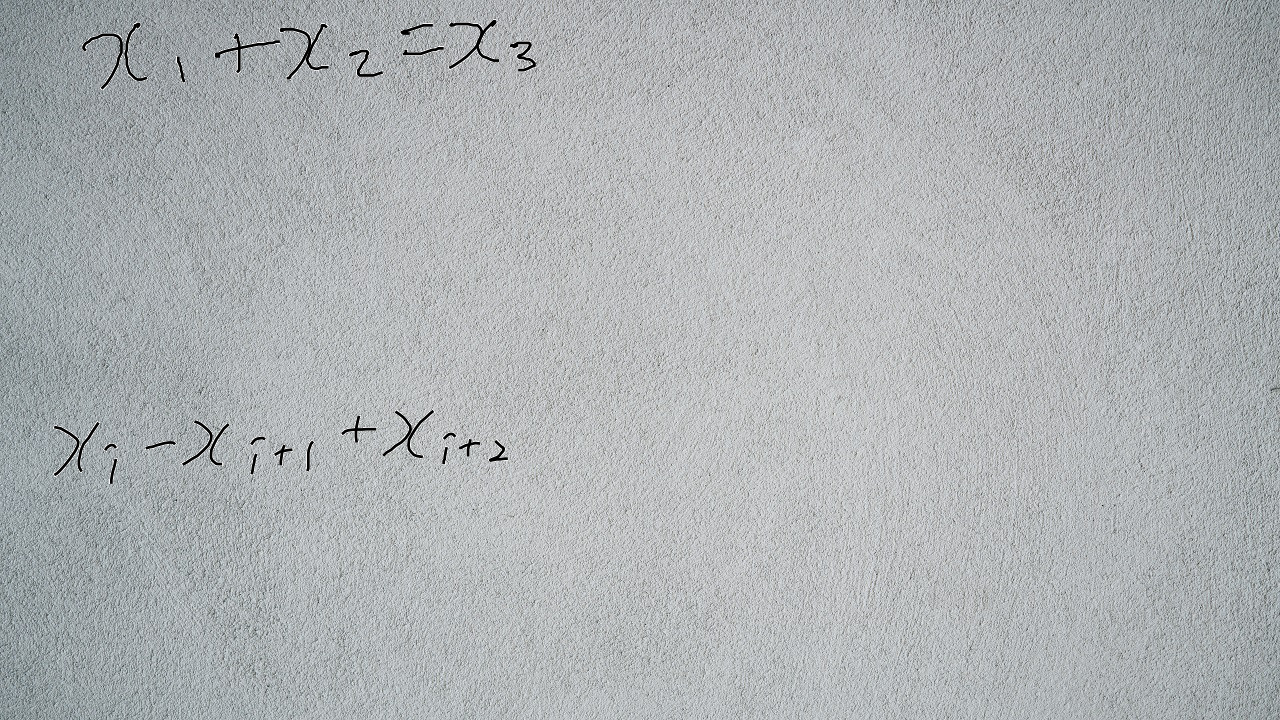 x₁ + x₂ = x₃
xᵢ − xᵢ₊₁ + xᵢ₊₂